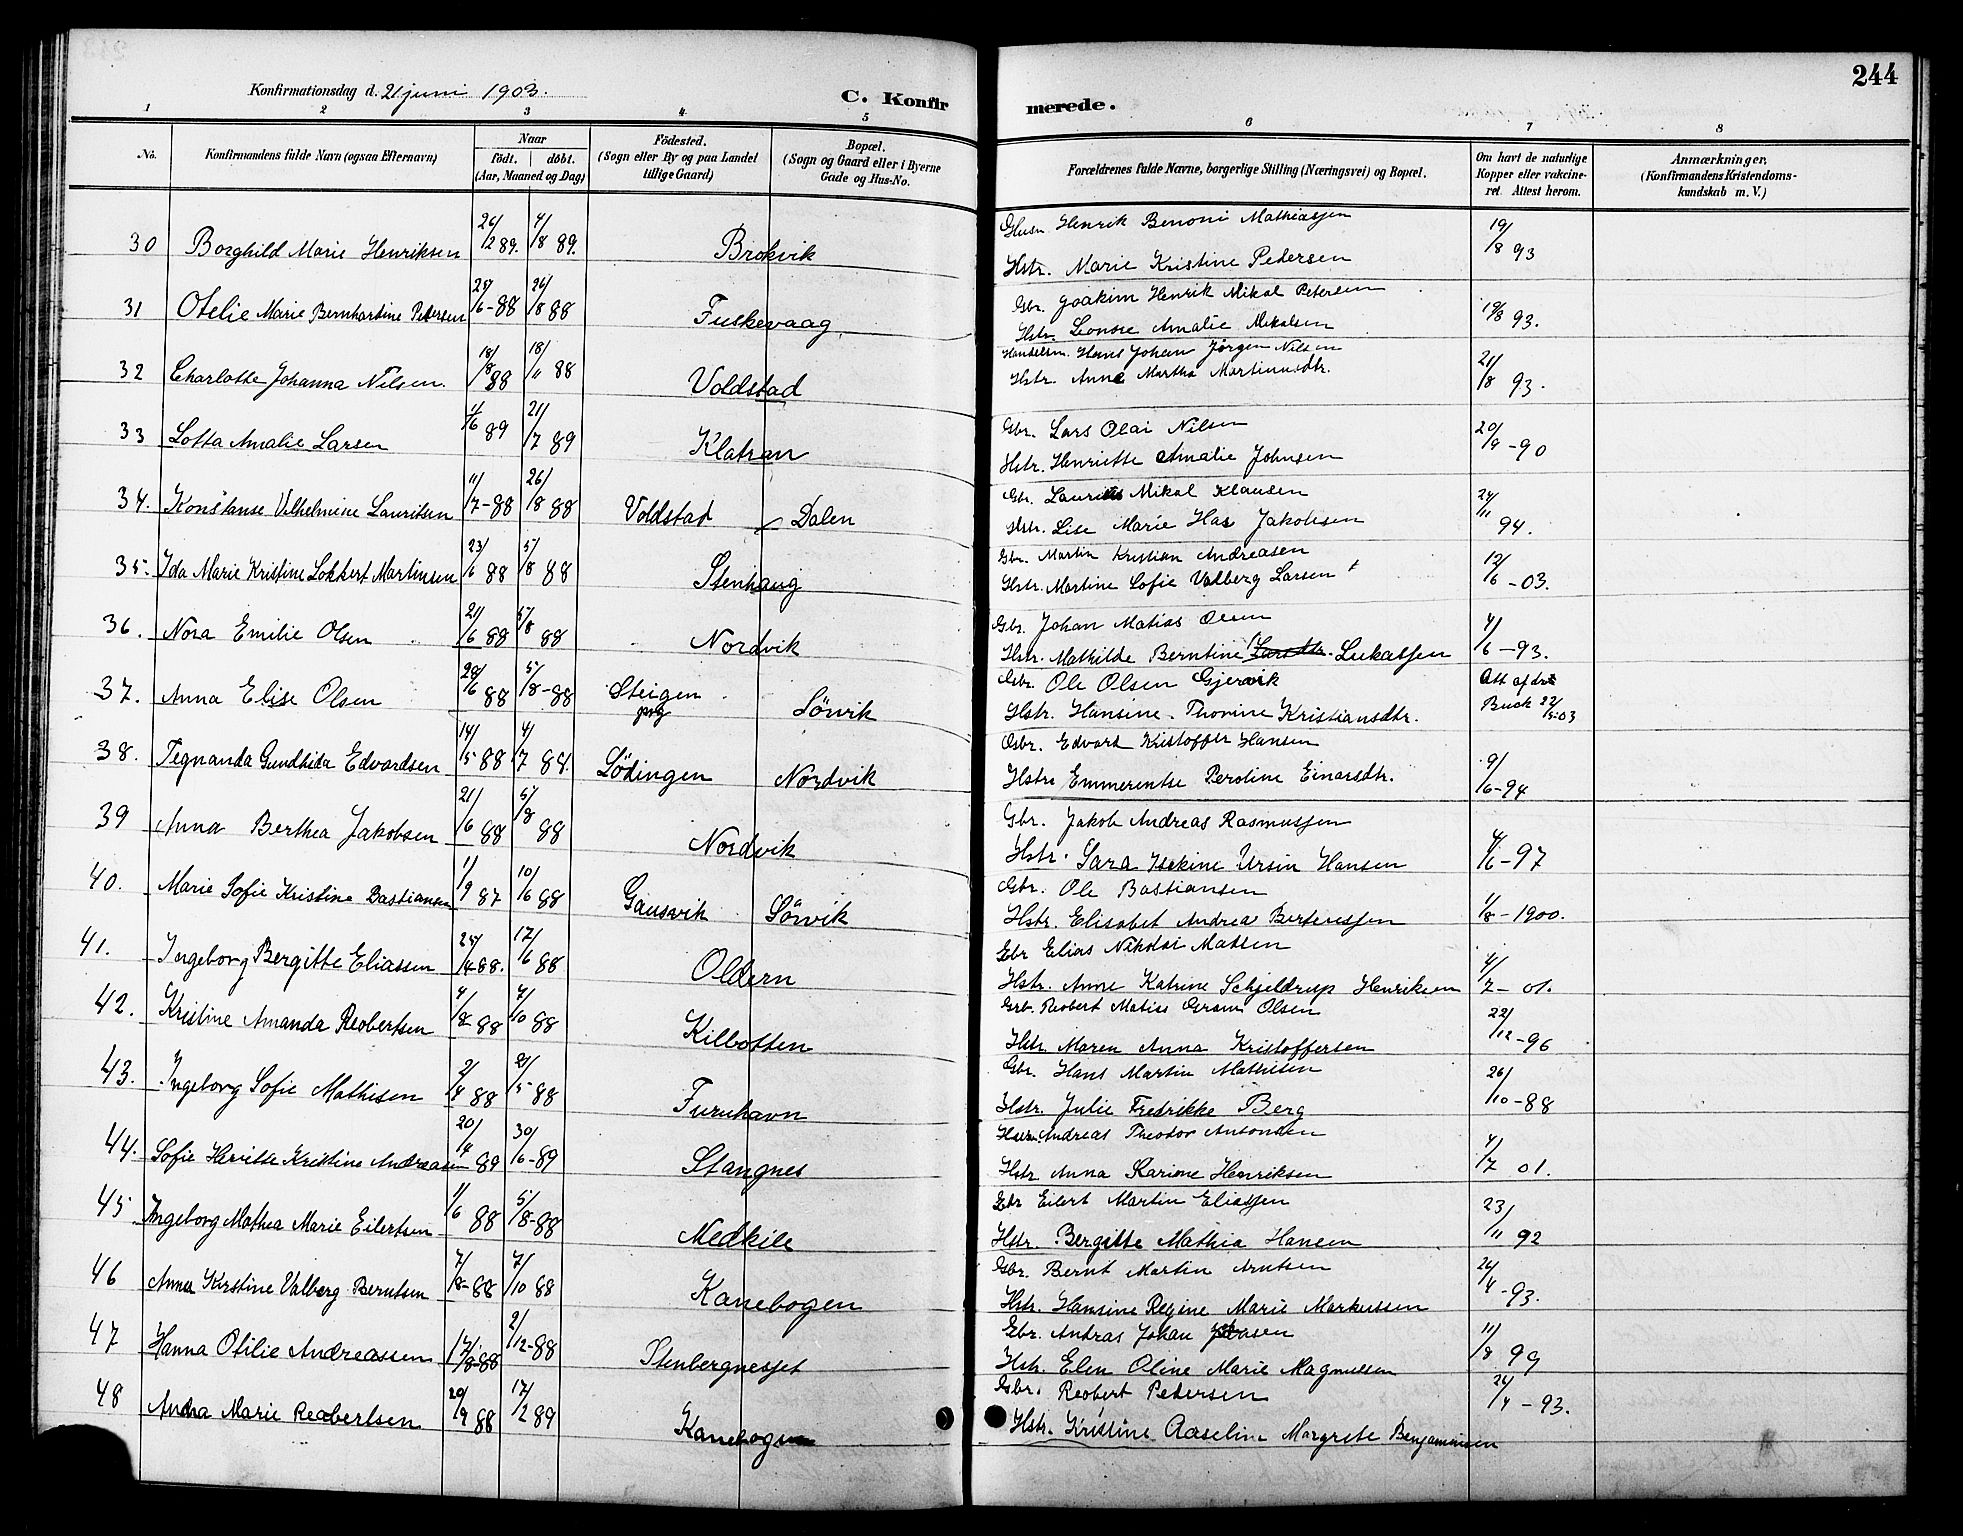 244
Konfirmationsdag d. 21 juni 1903.
C. Konfirmerede.
1 2 3 4 5 6 7 8
No. Konfirmandens fulde Navn (ogsaa Efternavn) Naar født. døbt. (Aar, Maaned og Dag) Fødested. (Sogn eller By og paa Landet tillige Gaard) Bopæl. (Sogn og Gaard eller i Byerne Gade og Hus-No. Forældrenes fulde Navne, borgerlige Stilling (Næringsvei) og Bopæl. Om havt de naturlige Kopper eller vakcineret. Attest herom. Anmærkninger. (Konfirmandens Kristendomskundskab m. V.)
30 Borghild Marie Henriksen 26/12 89. 4/8 89. Brokvik Husm Henrik Benoni Mathiassen 19/8 93
Hstr. Marie Kristine Pedersen
31 Otelie Marie Bernhartine Petersen 25/6-88 26/8 88 Fuskevaag Gbr. Joakim Henrik Mikal Petersen 19/8 93.
Hstr. Leonore Amalie Mikalsen
32 Charlotte Johanna Nilsen. 18/8 88 18/11 88 Voldstad Handelsm. Hans Johan Jørgen Nilsen 21/8 93.
Hstr. Anne Martha Martinusdtr.
33 Lotta Amalie Larsen 1/6 89 21/7 89 Klatran Gbr. Lars Olai Nilsen 20/9-90
Hstr. Henriette Amalie Johnsen
34. Konstanse Vilhelmine Lauritsen 11/7-88 26/8 88 Voldstad Dalen Gbr. Laurits Mikal Klausen 24/11 94.
Hstr. Lise Marie Has Jakobsen
35. Ida Marie Kristine Lokkert Martinsen 23/6 88 5/8 88 Stenhaug Gbr. Martin Kristian Andreasen 12/6-03.
Hstr. Martine Sofie Valberg Larsen †
36. Nora Emilie Olsen 21/6 88 5/8 88 Nordvik Gbr. Johan Matias Olsen 4/6-93.
Hstr. Mathilde Berntine Larsdtr. Lukassen
37. Anna Elise Olsen 28/6 88 5/8-88 Steigen prg Sørvik Gbr. Ole Olsen Gjervik Att af dr Buck 22/5-03
Hstr. Hansine Thorine Kristiansdtr.
38. Tegnanda Gundhida Edvardsen 14/5 88 4/7 88. Lødingen Nordvik Gbr. Edvard Kristoffer Hansen 9/6-94
Hstr. Emmerentse Peroline Einarsdtr.
39 Anna Berthea Jakobsen 21/6 88 5/8 88 Nordvik Gbr. Jakob Andreas Rasmussen 4/6-97
Hstr. Sara Isekine Ursin Hansen
40. Marie Sofie Kristine Bastiansen 1/9 87 10/6 88 Gausvik Sørvik Gbr. Ole Bastiansen 1/8-1900.
Hstr. Elisabet Andrea Bertenssen
41. Ingeborg Bergitte Eliassen 25/4-88. 17/6 88 Oldern Gbr Elias Nikolai Matsen 4/7-01.
Hstr. Anne Katrine Schjeldrup Henriksen
42. Kristine Amanda Reobertsen 4/8-88 7/10 88 Kilbotten Gbr. Reobert Matias Gram Olsen 22/12-96
Hstr. Maren Anna Kristoffersen
43. Ingeborg Sofie Mathisen 2/4 88 21/5-88 Furuhavn Gbr. Hans Martin Mathisen 26/10-88
Hstr. Julie Fredrikke Berg
44. Sofie Herritte Kristine Andreasen 20/4 89 30/6-89 Stangnes Husm. Andreas Theodor Antonsen 4/7 01.
Hstr Anna Karine Henriksen
45 Ingeborg Mathea Marie Eilertsen 1/6 88 5/8-88 Medkile Gbr Eilert Martin Eliassen 23/11 92
Hstr. Bergitte Mathia Hansen
46 Anna Kirstine Valberg Berntsen 7/8-88 7/10 88 Kanebogen Gbr. Bernt Martin Arntsen 24/4-93.
Hstr. Hansine Regine Marie Markussen
47 Hanna Otilie Andreassen 17/8-88 2/12-88 Stenbergnesset Gbr. Andras Johan 11/8 99
Hstr. Elen Oline Marie Magnussen
48 Andra Marie Reobertsen 20/9 88 17/2 89 Kanebogen Gbr. Reobert Pedersen 24/4-93.
Hstr. Kristine Aaseline Margrete Benjaminsen